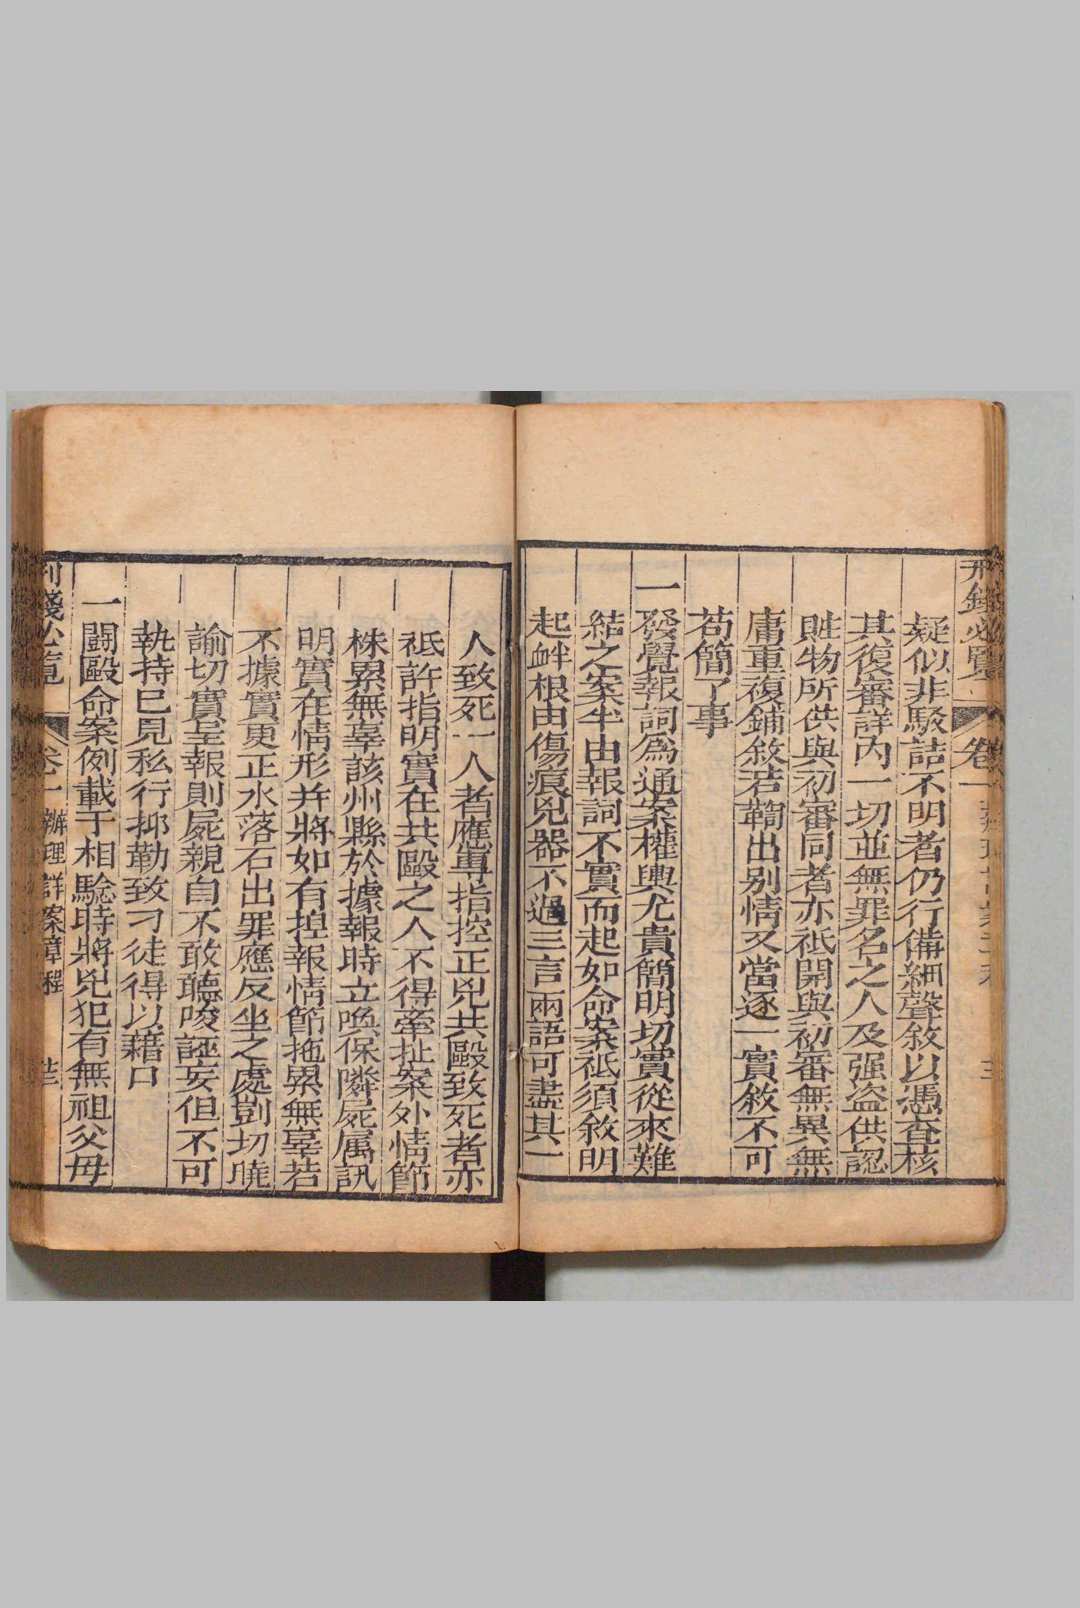 疑似非駁詰不明者仍行備細聲敘以憑查核
其復審詳內一切並無罪名之人及强盜供認
賍物所供與初審同者亦祗開與初審無異無
庸重復鋪敘若鞫出別情又當逐一實敘不可
苟簡了事
一發覺報詞為通案權輿尤貴簡明切實從來難
結之案半由報詞不實而起如命案祗須敘明
起衅根由傷痕兇器不過三言兩語可盡其一
人致死一人者應專指控正兇共毆致死者亦
祗許指明實在共毆之人不得牽扯案外情節
株累無辜該州縣於據報時立喚保隣屍屬訊
明實在情形并將如有揑報情節拖累無辜若
不據實更正水落石出罪應反坐之處剴切曉
諭切實呈報則屍親自不敢聽唆誣妄但不可
執持已見私行抑勒致刁徒得以藉口
一鬭毆命案例載于相驗時將兇犯有無祖父母
卷一 辦理詳案章程 廿三
卷一